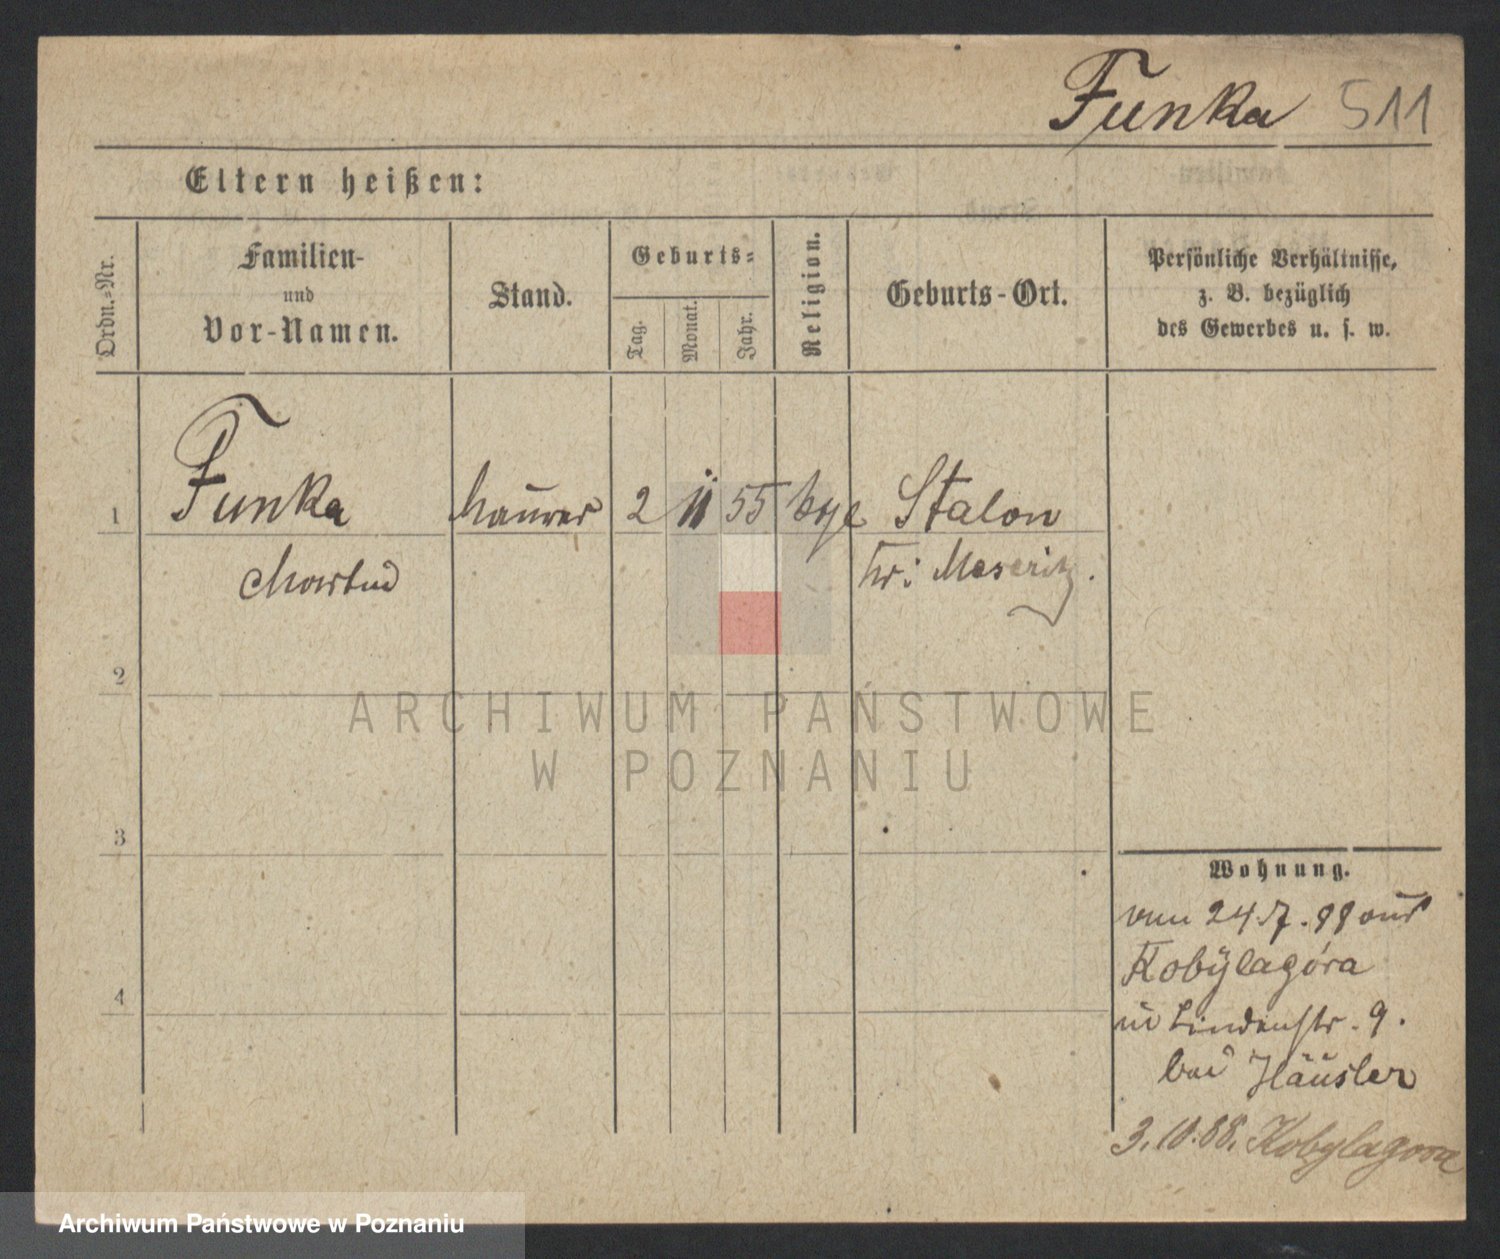 Funka 511
Eltern heißen:
Ordn.-Nr.
Familien-
und
Vor-Namen.
Stand.
Geburts-
Tag.
Monat.
Jahr.
Religion.
Geburts-Ort.
Persönliche Verhältnisse,
z. B. bezüglich
des Gewerbes u. s. w.
1 Funka Maurer 2 11 55 Stalon
Martin Kr: Meseritz.
2
ARCHIWUM PAŃSTWOWE
W POZNANIU
3
4
Wohnung.
24.7. aus
Kobÿlagóra
in Lindenstr. 9.
bei Häusler
3.10.88. Kobylagora
Archiwum Państwowe w Poznaniu